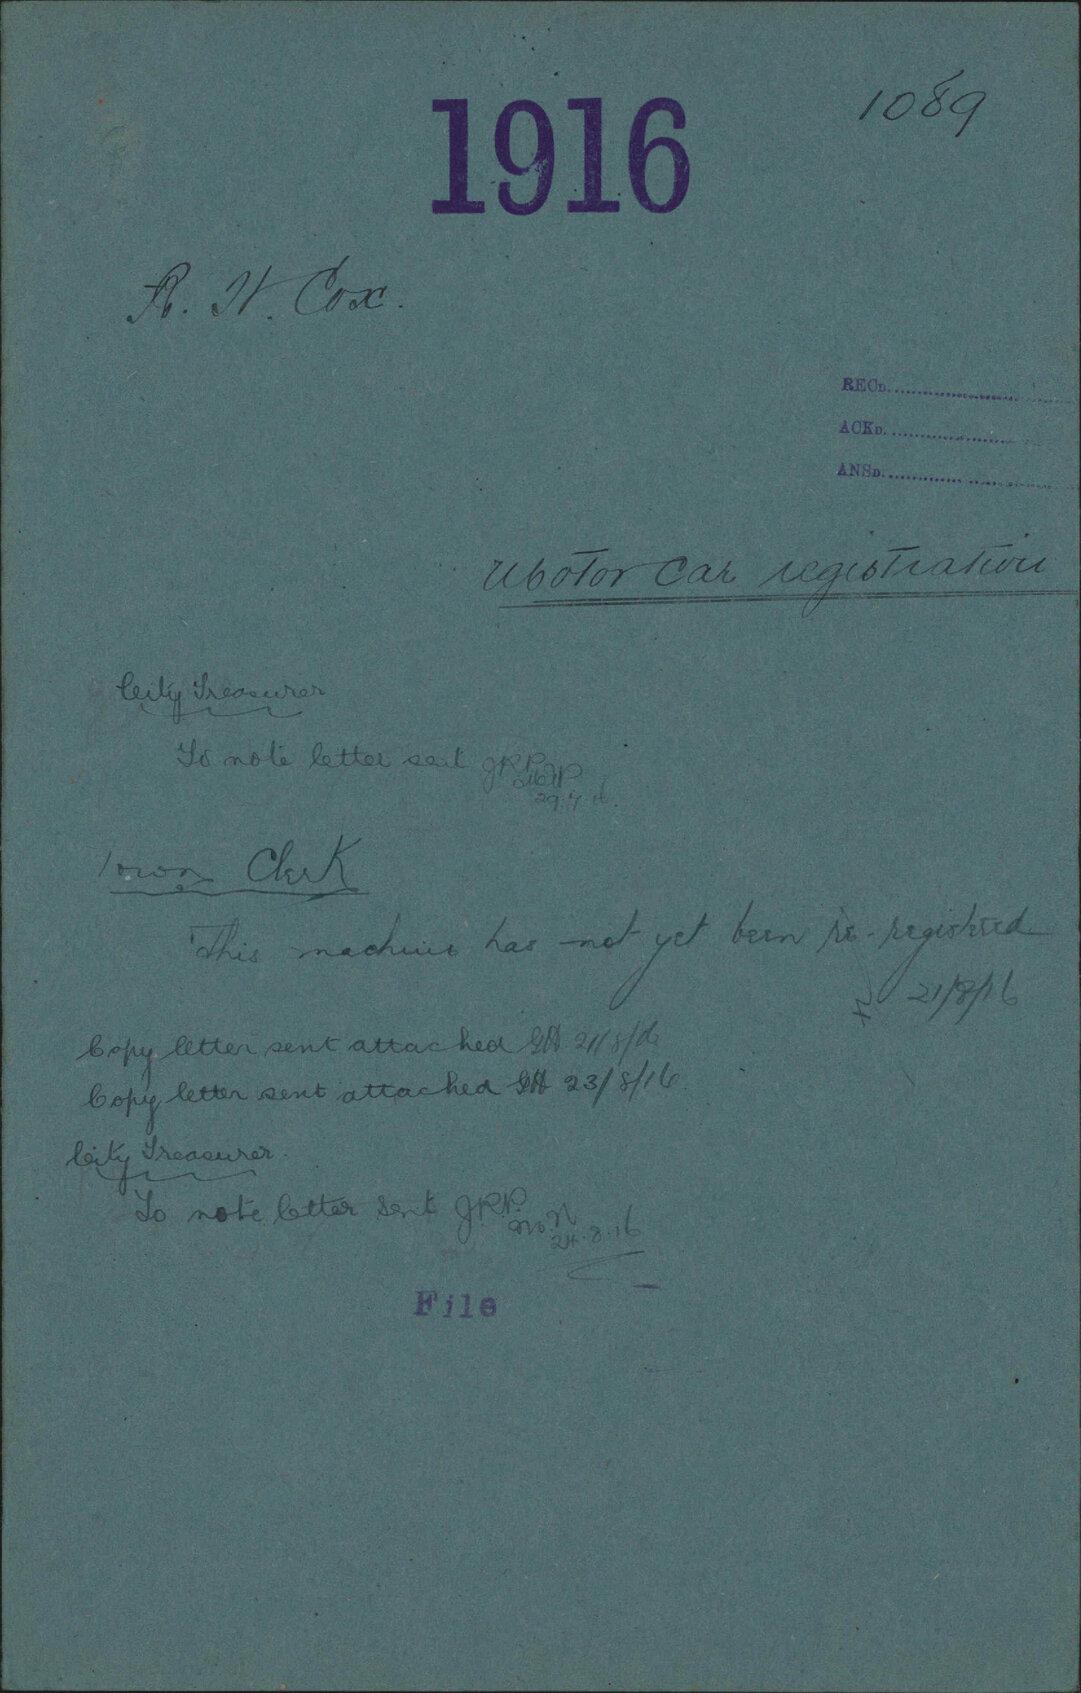 1916
1089
A. H. Cox.
RECD.
ACKD.
ANSD.
Motor Car registration
City Treasurer
To note letter sent JRP
29.7.16.
Town Clerk
This machine has not yet been re-registered
21/8/16
Copy letter sent attached GH 21/8/16
Copy letter sent attached GH 23/8/16.
City Treasurer.
To note letter sent JRP.
24.8.16
File